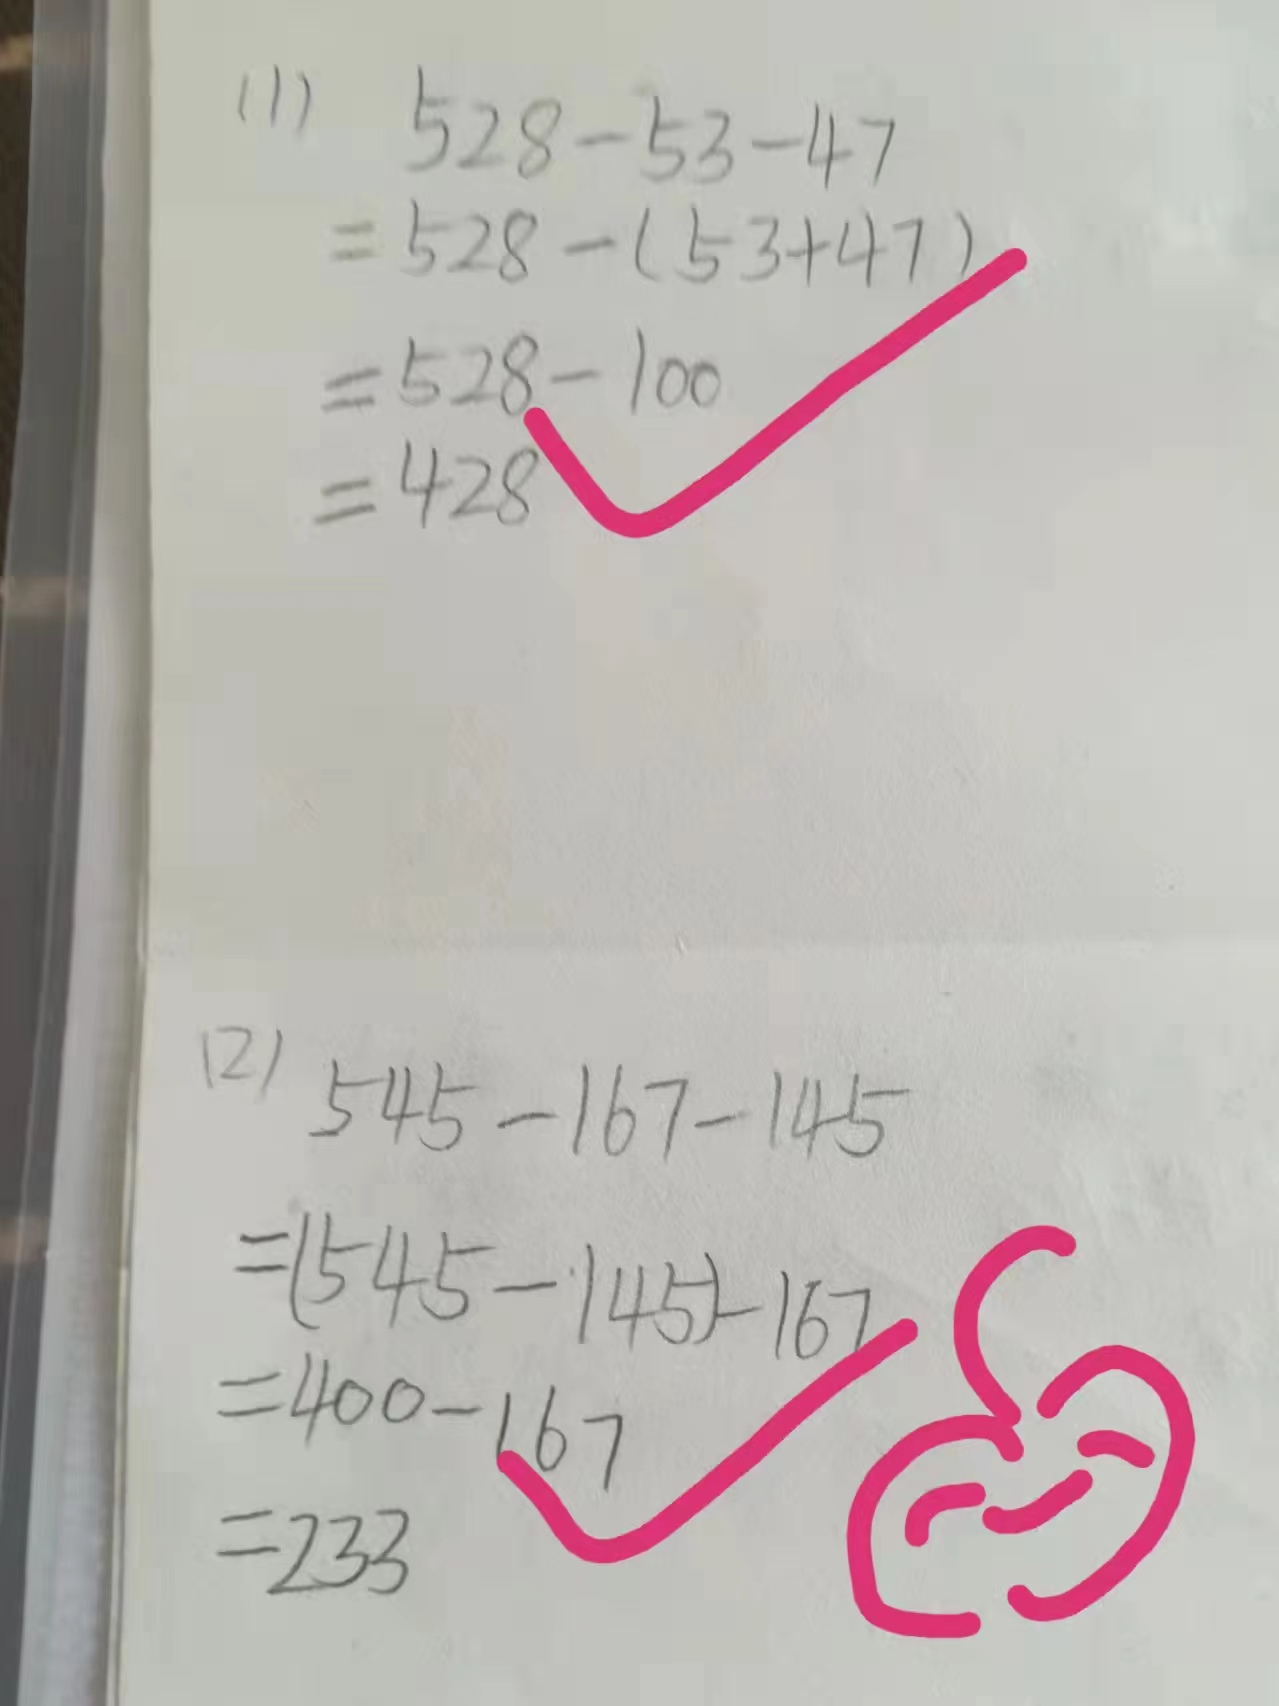 (1) 528-53-47
=528-(53+47)
=528-100
=428
(2) 545-167-145
=(545-145)-167
=400-167
=233